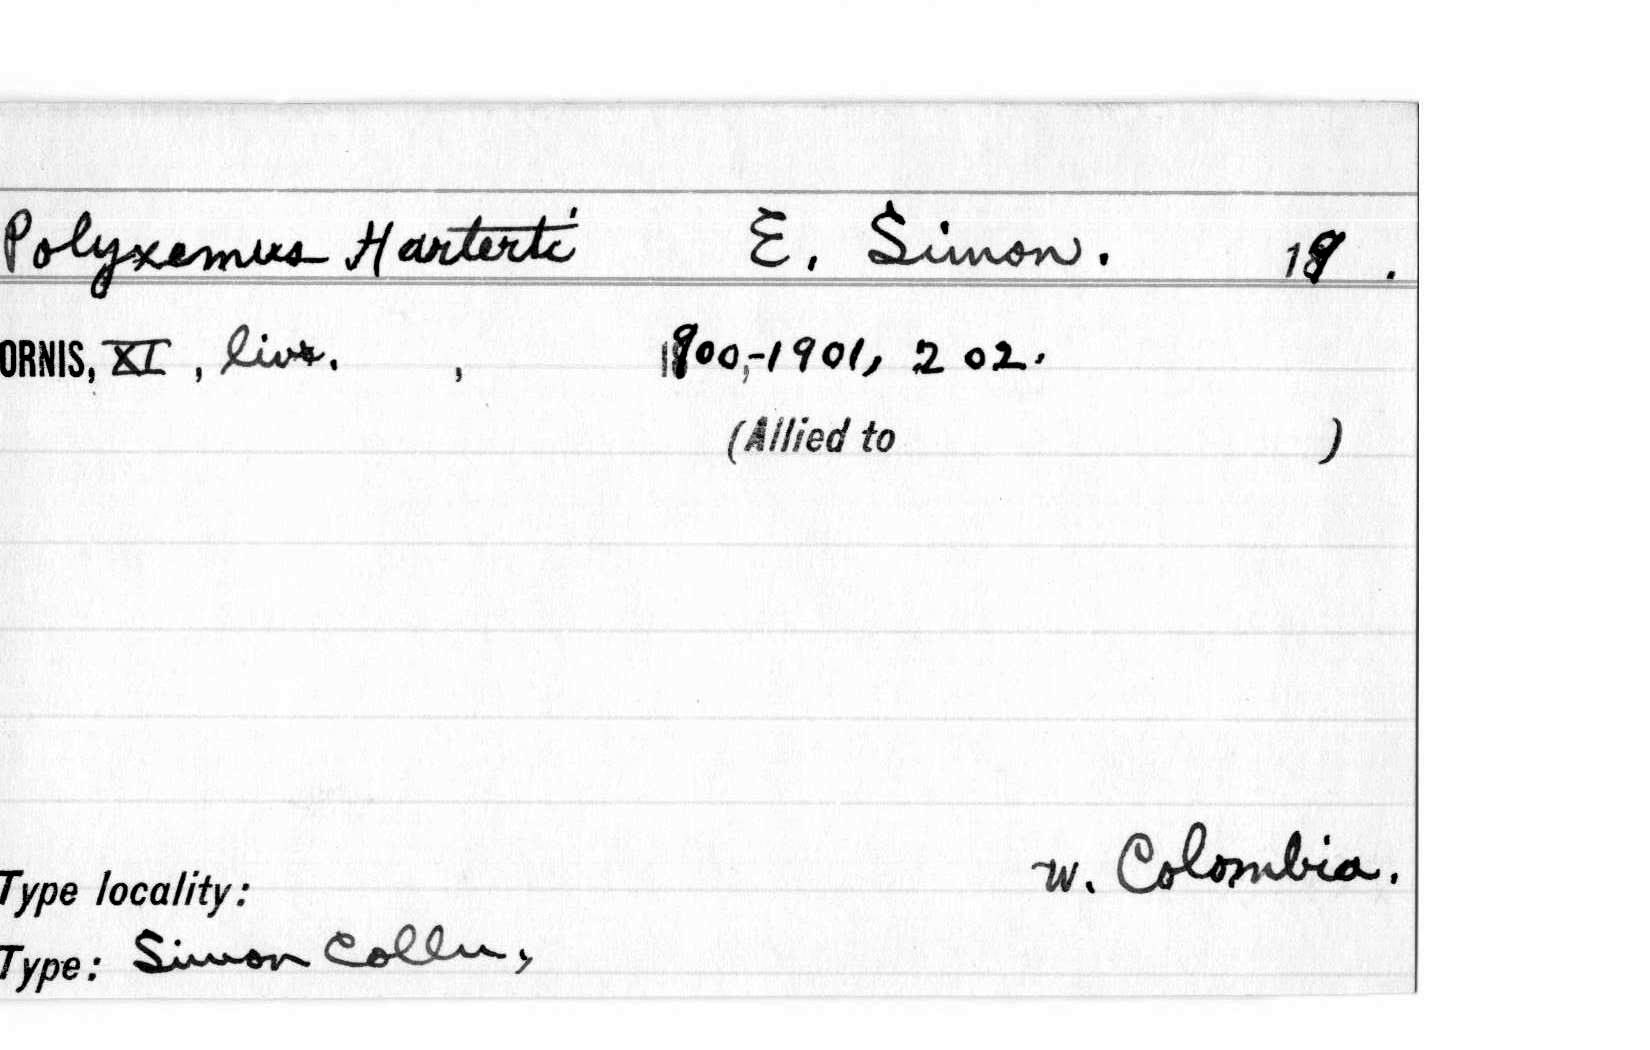 Polyxemus Harterti E. Simon. 19 .
ORNIS, XI, livr. , 1900,-1901, 202.
(Allied to )
W. Colombia.
Type locality:
Type: Simon Colln,